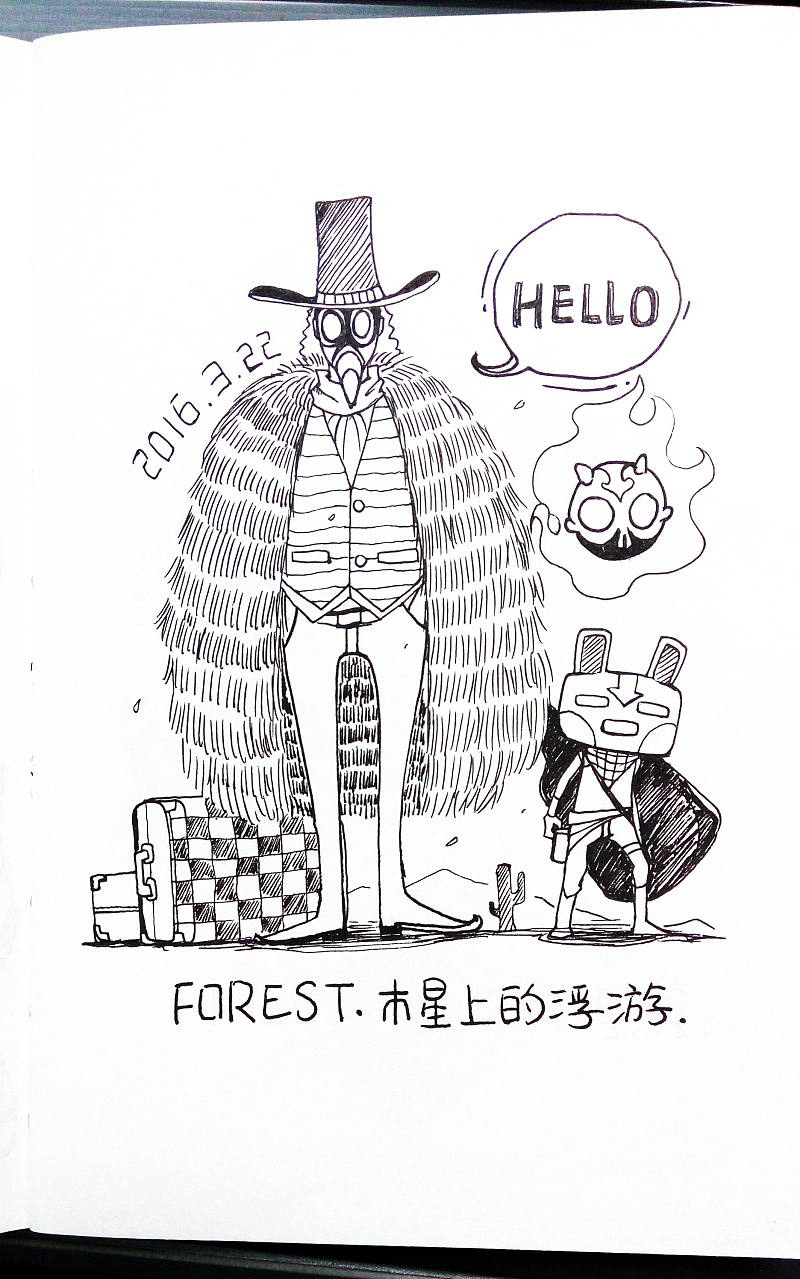 HELLO
2016.3.22
FOREST.木星上的浮游.